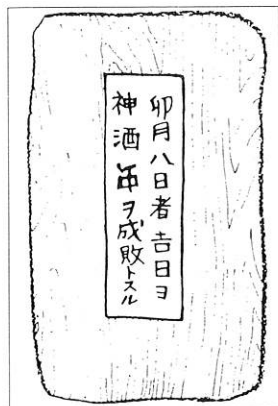 卯月八日者吉日ヨ
神酒 ヲ成敗トスル